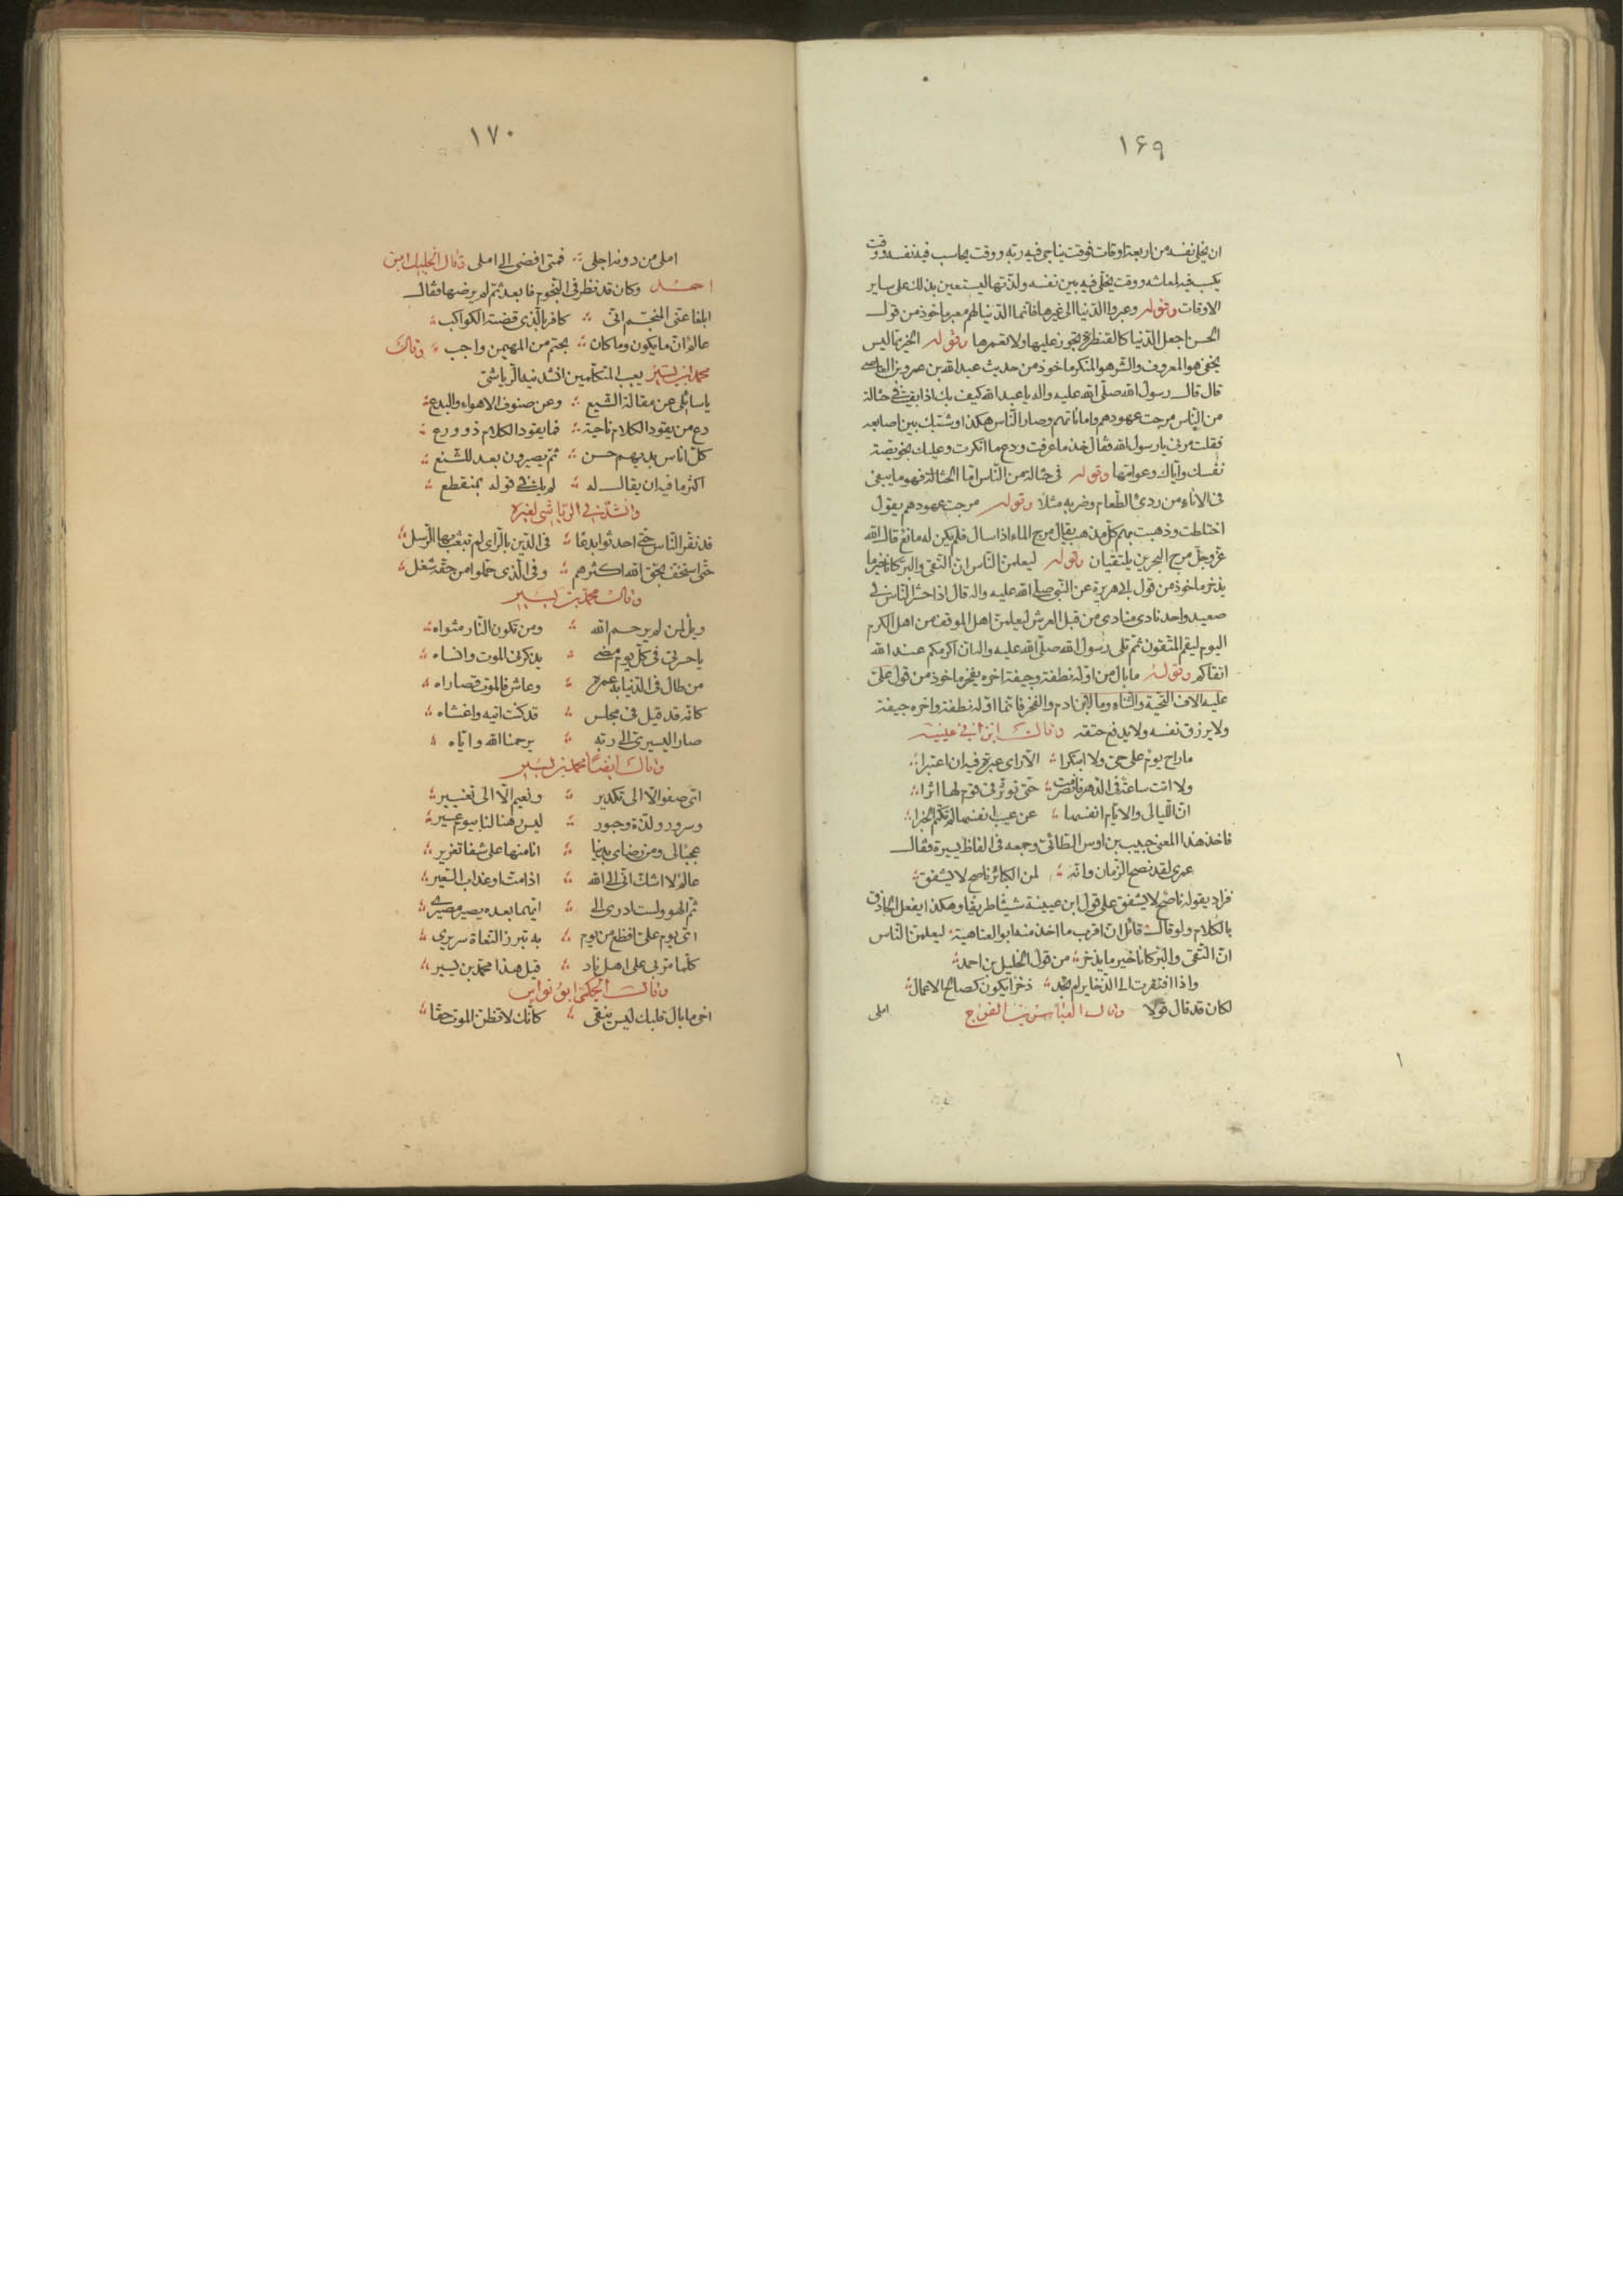 ١۶٩
ان يخلى نفسه من اربعة اوقات فوقت يناجى فيه ربه ووقت يحاسب فيه نفسه ووقت
يكسب فيه لمعاشه ووقت يخلّى فيه بين نفسه ولذّتها ليستعين بذلك على ساير
الاوقات وقوله وعبروا الدّنيا الى غيرها فانّما الدّنيا لهم معبر ماخوذ من قول
الحسن اجعل الدّنيا كالقنطرة تجوز عليها ولا تعمرها وقوله الخير ممّا ليس
يخفى هو المعروف والشّر هو المنكر ماخوذ من حديث عبد الله بن عمرو بن العاصى
قال قال رسول الله صلّى الله عليه واله يا عبد الله كيف بك اذا بقيت فى حثالة
من النّاس مرجت عهودهم واماناتهم وصار النّاس هكذا وشبّك بين اصابعه
فقلت مرنى يا رسول الله فقال خذ ما عرفت ودع ما انكرت وعليك بخويصة
نفسك واياك وعوامّها وقوله فى حثالة من النّاس امّا الحثالة فهو ما يبقى
فى الاناء من ردئ الطّعام وضربه مثلا وقوله مرجت عهودهم يقول
اختلطت وذهبت بهم كلّ مذهب يقال مرج الماء اذا سال فلم يكن له مانع قال الله
عزّ وجلّ مرج البحرين يلتقيان وقوله ليعلمنّ النّاس ان التّقى والبرّ كانا خير ما
يذخر ماخوذ من قول ابى هريرة عن النّبى صلّى الله عليه واله قال اذا حشر النّاس فى
صعيد واحد نادى منادى من قبل العرش ليعلمنّ اهل الموقف من اهل الكرم
اليوم ليقم المتّقون ثمّ تلى رسول الله صلّى الله عليه واله ان اكرمكم عند الله
اتقاكم وقوله ما بال من اوّله نطفة وجيفة اخره يفخر ماخوذ من قول علىّ
عليه الاف التّحية والثّناء وما لابن ادم والفخر فانّما اوّله نطفة واخره جيفة
ولا يرزق نفسه ولا يدفع حتفه وقال ابن ابى عيينة
ما راح يوم على حىّ ولا ابتكرا الّا راى عبرة فيه ان اعتبرا
ولا اتت ساعة فى الدّهر فانصرمت حتى تؤثّر فى قوم لها اثرا
انّ اللّيالى والايّام انفسها عن عيب انفسها لم تكتم الخبرا
فاخذ هذا المعنى حبيب بن اوس الطّائى وجمعه فى الفاظ يسيرة فقال
عمرى لقد نصح الزّمان وانّه لمن الكبائر ناصح لا يشفق
فزاد بقوله ناصح لا يشفق على قول ابن عيينة شيئًا طريفًا وهكذا يفعل الحاذق
بالكلام ولو قال قائل انّ اقرب ما اخذ منه ابو العتاهية ليعلمنّ النّاس
انّ التّقى والبرّ كانا خير ما يذخر من قول الخليل بن احمد
واذا افتقرت الى الذّخاير لم تجد ذخرًا يكون كصالح الاعمال
لكان قد قال قولا وقال العبّاس بن الفرج
املى
١٧٠
املى من دونه اجلى فمتى افضى الى املى وقال الخليل بن
احمد وكان قد نظر فى النّجوم فابعد ثمّ لم يرضها فقال
ابلغا عنّى المنجّم انّى كافر بالّذى قضته الكواكب
عالم انّ ما يكون وما كان بحتم من المهيمن واجب وقال
محمّد بن يسير يعيب المتكلّمين انشدنيه الرّياشى
يا سائلى عن مقالة الشّيع وعن صنوف الاهواء والبدع
دع من يقود الكلام ناحية فما يقود الكلام ذو ورع
كلّ اناس بديهم حسن ثمّ يصيرون بعد للشّنع
اكثر ما فيه ان يقال له لم يك فى قوله بمنقطع
وانشدنى الرّياشى لغيره
قد نقر النّاس حتّى احدثوا بدعًا فى الدّين بالرّاى لم تبعث بها الرّسل
حتّى استخفّ بحقّ الله اكثرهم وفى الّذى حمّلوا من حقّه شغل
وقال محمّد بن يسير
ويل لمن لم يرحم الله ومن تكون النّار مثواه
يا حسرتى فى كلّ يوم مضى يذكّرنى الموت وانساه
من طال فى الدّنيا به عمره وعاش فالموت قصاراه
كانّه قد قيل فى مجلس قد كنت اتيه واغشاه
صار اليسيرى الى ربّه يرحمنا الله وايّاه
وقال ايضًا محمّد بن يسير
اىّ صفو الّا الى تكدير ونعيم الّا الى تغيير
وسرور ولذّة وحبور ليس رهنا لنا بيوم عسير
عجبًا لى ومن رضاى بدنيا انا منها على شفا تغرير
عالم لا اشكّ انّى الى الله اذا مت او عذاب السّعير
ثمّ الهو ولست ادرى الى ايّهما بعده يصير مصيرى
اىّ يوم علىّ افظع من يوم به تبرز النّعاة سريرى
كلّما مرّ بى على اهل ناد قيل هذا محمّد بن يسير
وقال الحكمى ابو نواس
اخى ما بال قلبك ليس ينقى كانّك لا تظنّ الموت حقّا